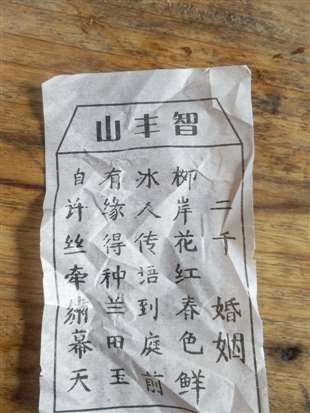 智丰山
二千 婚姻
柳岸花红春色鲜
冰人传语到庭前
有缘得种兰田玉
自许丝牵繡幕天